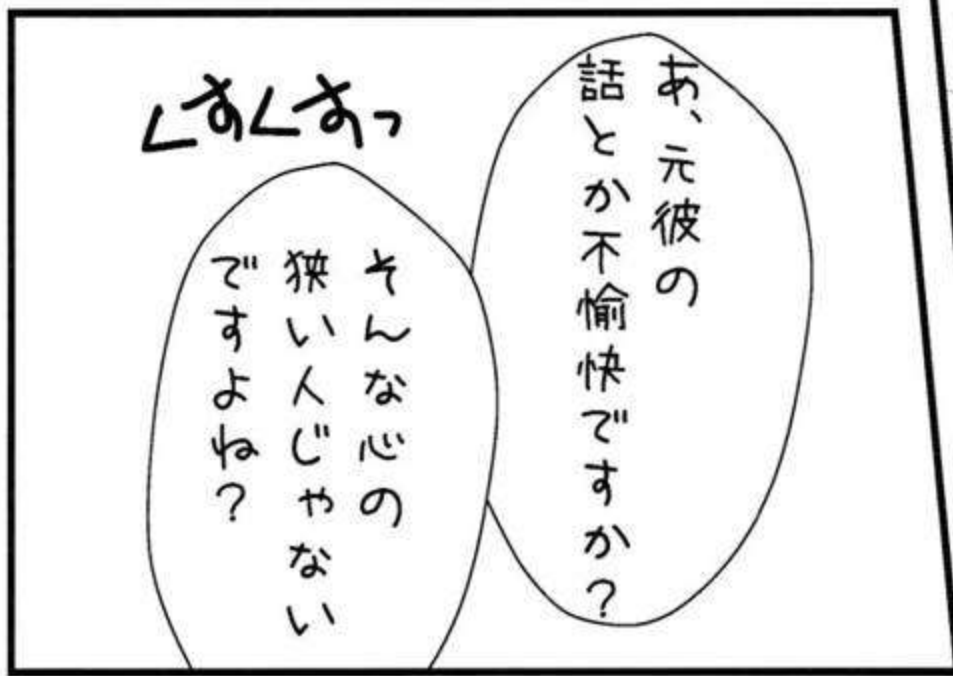 あ、元彼の
話とか不愉快ですか？
そんな心の
狭い人じゃない
ですよね？
くすくすっ